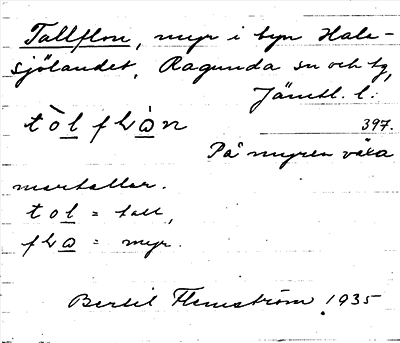 Tallflon, myr i byn Hale-
sjölandet, Ragunda sn och tg,
Jämtl. l.
tòlflòn
397.
På myren växa
martallar.
tol = tall,
flo = myr.
Bertil Flemström 1935